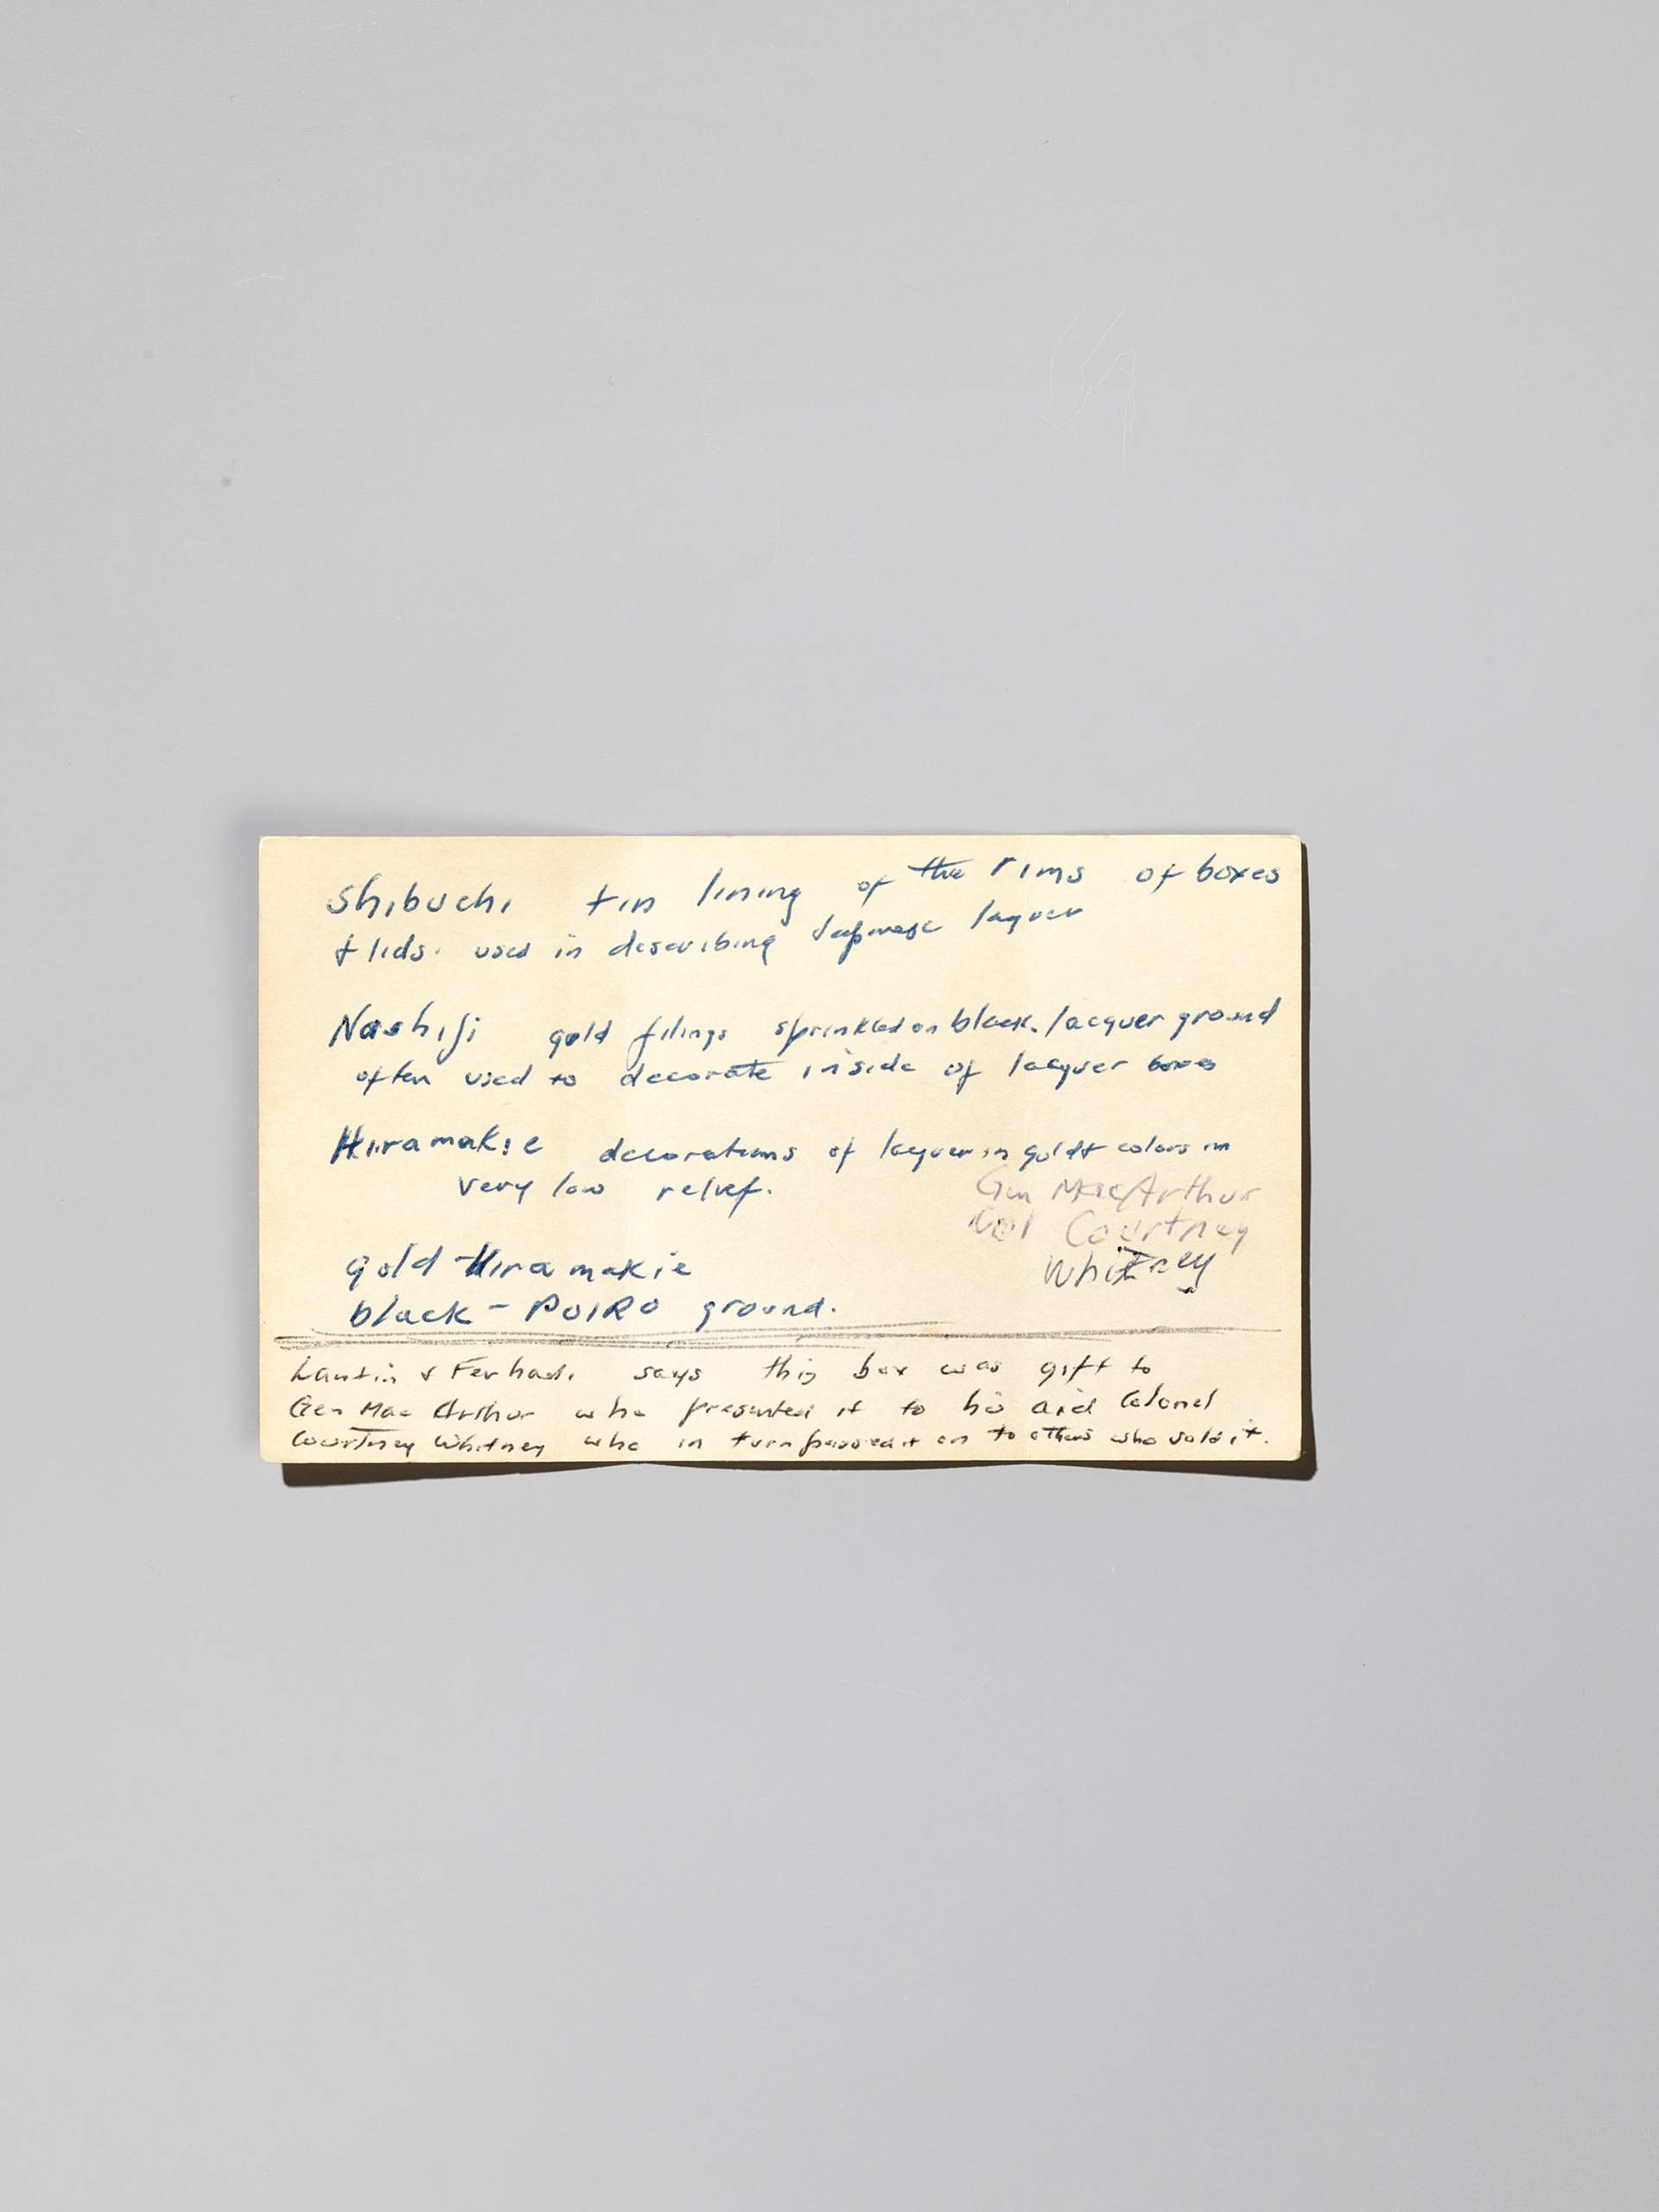 Shibuchi tin lining of the rims of boxes
+ lids. used in describing Japanese laquer
Nashiji gold filings sprinkled on black lacquer ground
often used to decorate inside of lacquer boxes
Hiramakie decorations of lacquer in gold + colors in
very low relief.
Gen MacArthur
Col Courtney
Whitney
gold Hiramakie
black - ROIRO ground.
& Ferhadi says this box was gift to
Gen Mac Arthur who presented it to his aid Colonel
Courtney Whitney who in turn passed it on to others who sold it.